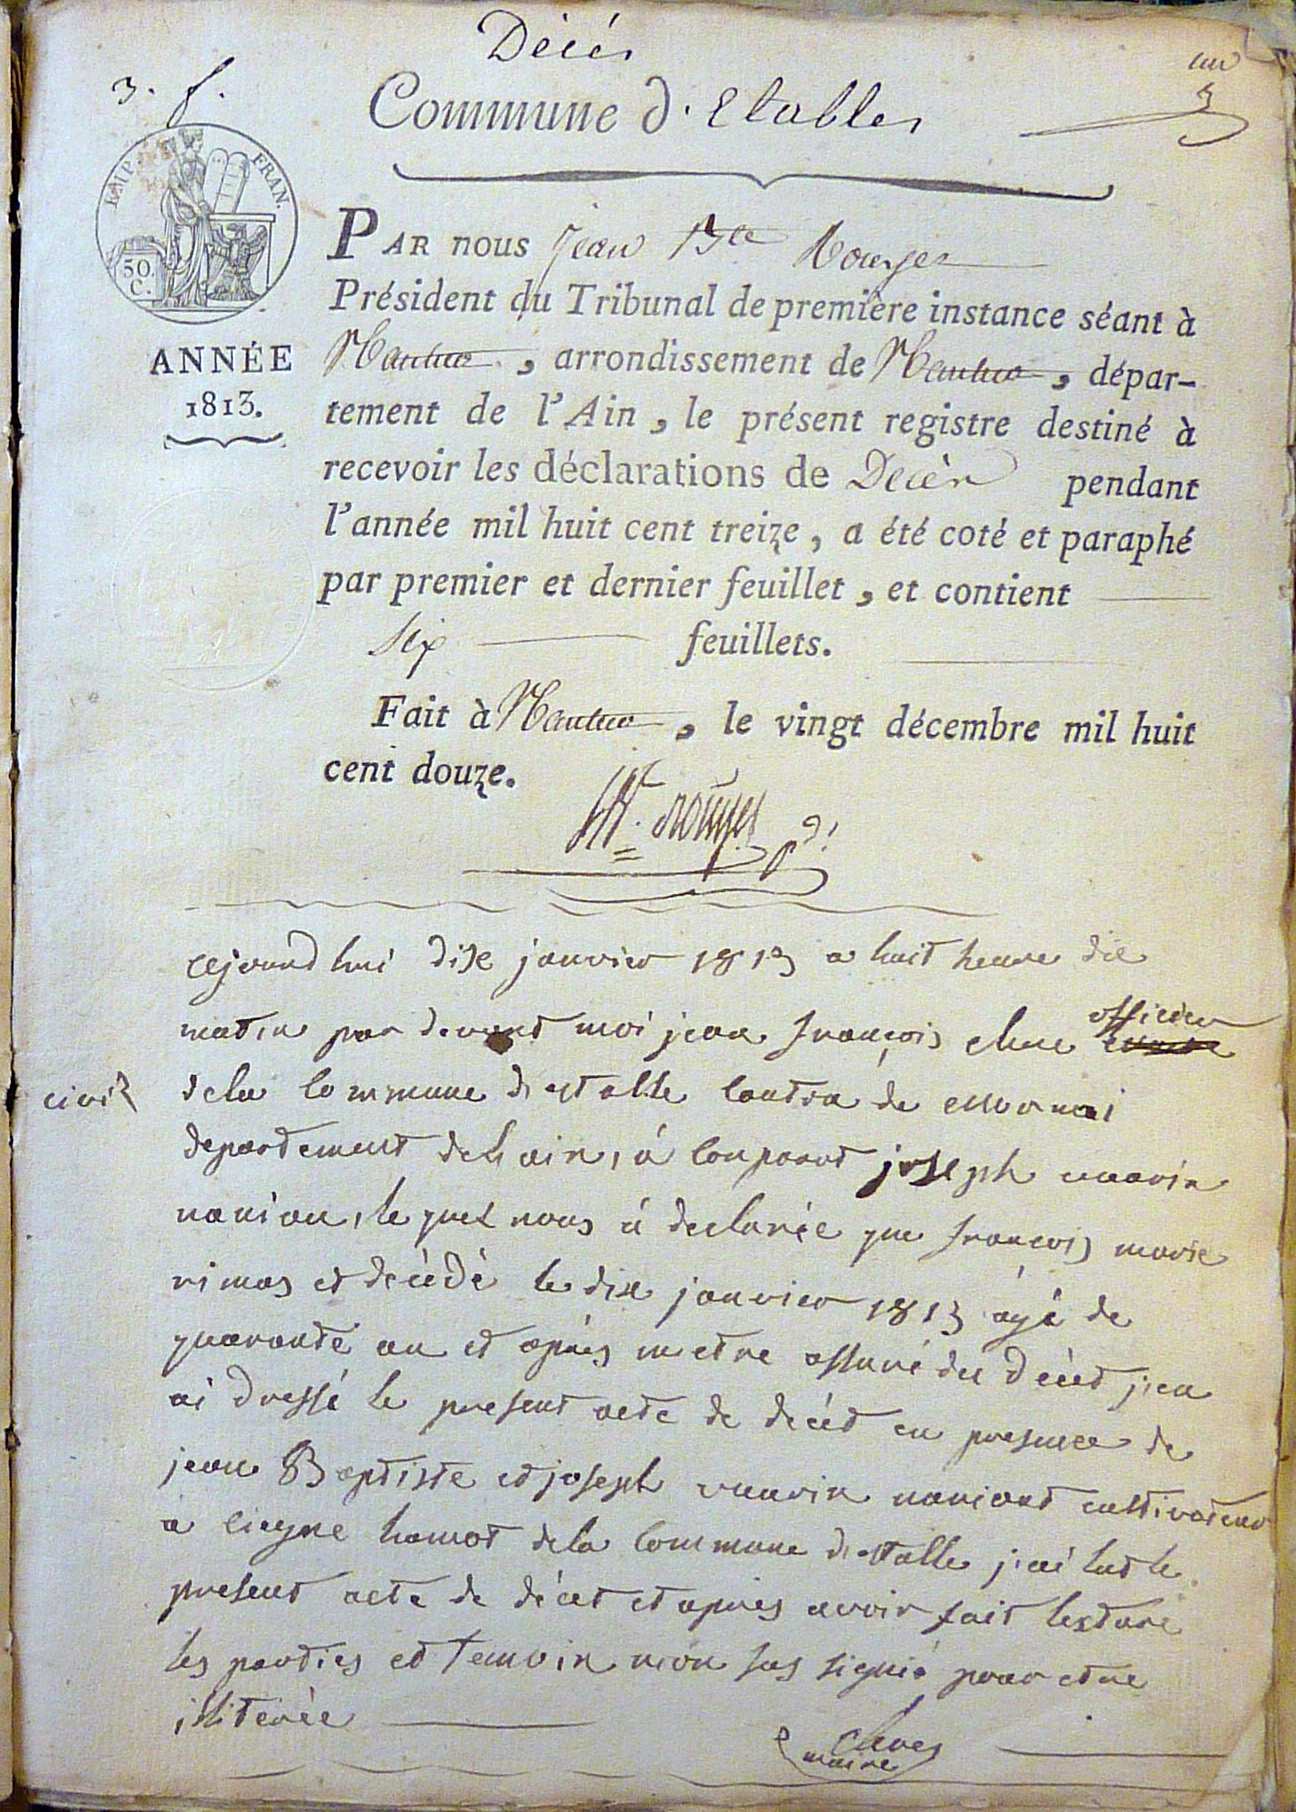 Décès
un
3. f.
Commune d'Etables
EMP. FRAN.
50.
C.
ANNÉE
1813.
PAR nous Jean Bte Rouyer
Président du Tribunal de première instance séant à
Nantua, arrondissement de Nantua, dépar-
tement de l'Ain, le présent registre destiné à
recevoir les déclarations de Décès pendant
l'année mil huit cent treize, a été coté et paraphé
par premier et dernier feuillet, et contient
six feuillets.
Fait à Nantua, le vingt décembre mil huit
cent douze.
rouyer pdt
cejourd hui dixe janvier 1813 a huit heure die
matin par devant moi jean françois officier
civil dela Commune d estable Canton de
departement deh ain, à Conparut joseph marin
naniau, le quel nous á declarèe que françois marie
rimas et decédé le dixe janvier 1813 ágé de
quarante an et apres metre assuré du decèt j'en
ai dressé le present acte de decèt en presence de
jean Baptiste et joseph marin naniant cultivateur
a ciegne hamot dela Commune d estalle j'ai lut le
present acte de décet et apres avoir fait lexture
les parties et temoin n'on sus signié pour etre
illiterèe
maire